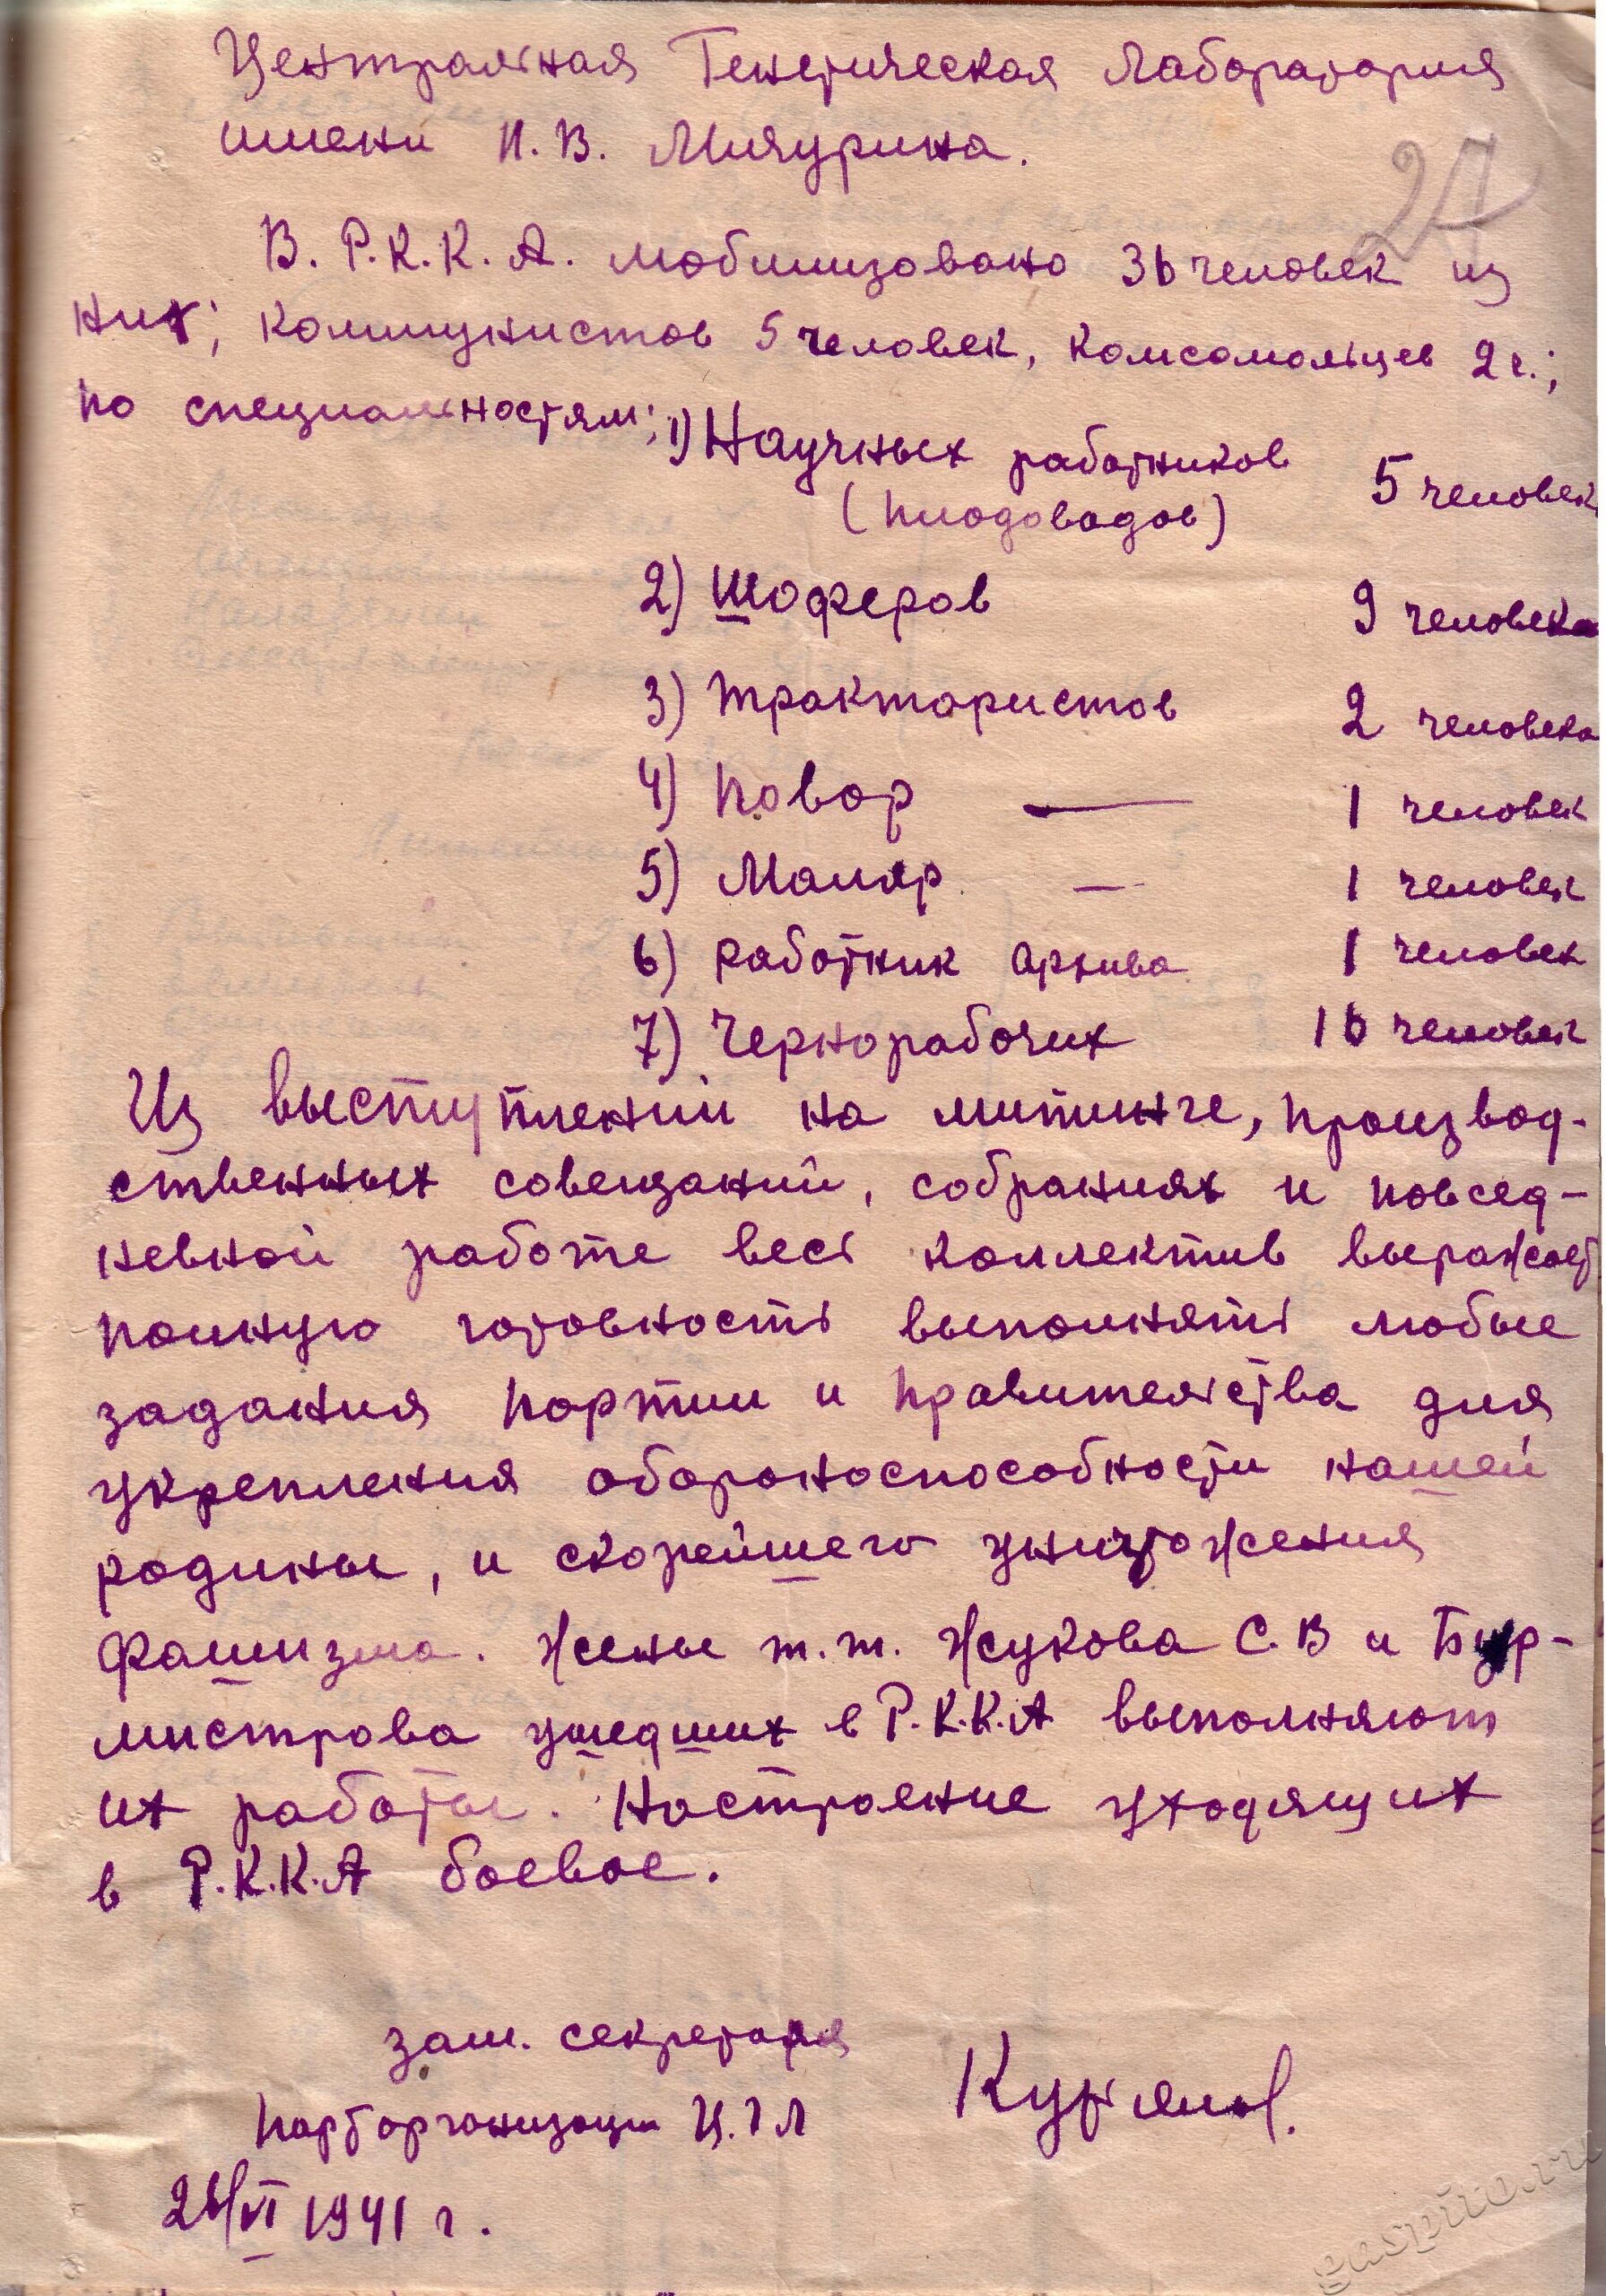 Центральная Генетическая Лаборатория
имени И. В. Мичурина.
В. Р.К.К.А. мобилизовано 36 человек из
них; коммунистов 5 человек, комсомольцев 2 ч.;
по специальностям; 1) Научных работников 5 человек
(плодоводов)
2) Шоферов 9 человека
3) трактористов 2 человека
4) повар — 1 человек
5) Маляр — 1 человек
6) работник архива 1 человек
7) Чернорабочих 16 человек
Из выступлений на митинге, производ-
ственных совещаний, собраниях и повсед-
невной работе весь коллектив выражает
полную готовность выполнять любые
задания партии и правительства для
укрепления обороноспособности нашей
родины, и скорейшего уничтожения
фашизма. Жены т.т. Жукова С. В и Бур-
мистрова ушедших в Р.К.К.А выполняют
их работы. Настроение уходящих
в Р.К.К.А боевое.
зам. секретаря
парторганизации Ц.Г Л
26/VI 1941 г.
gaspito.ru